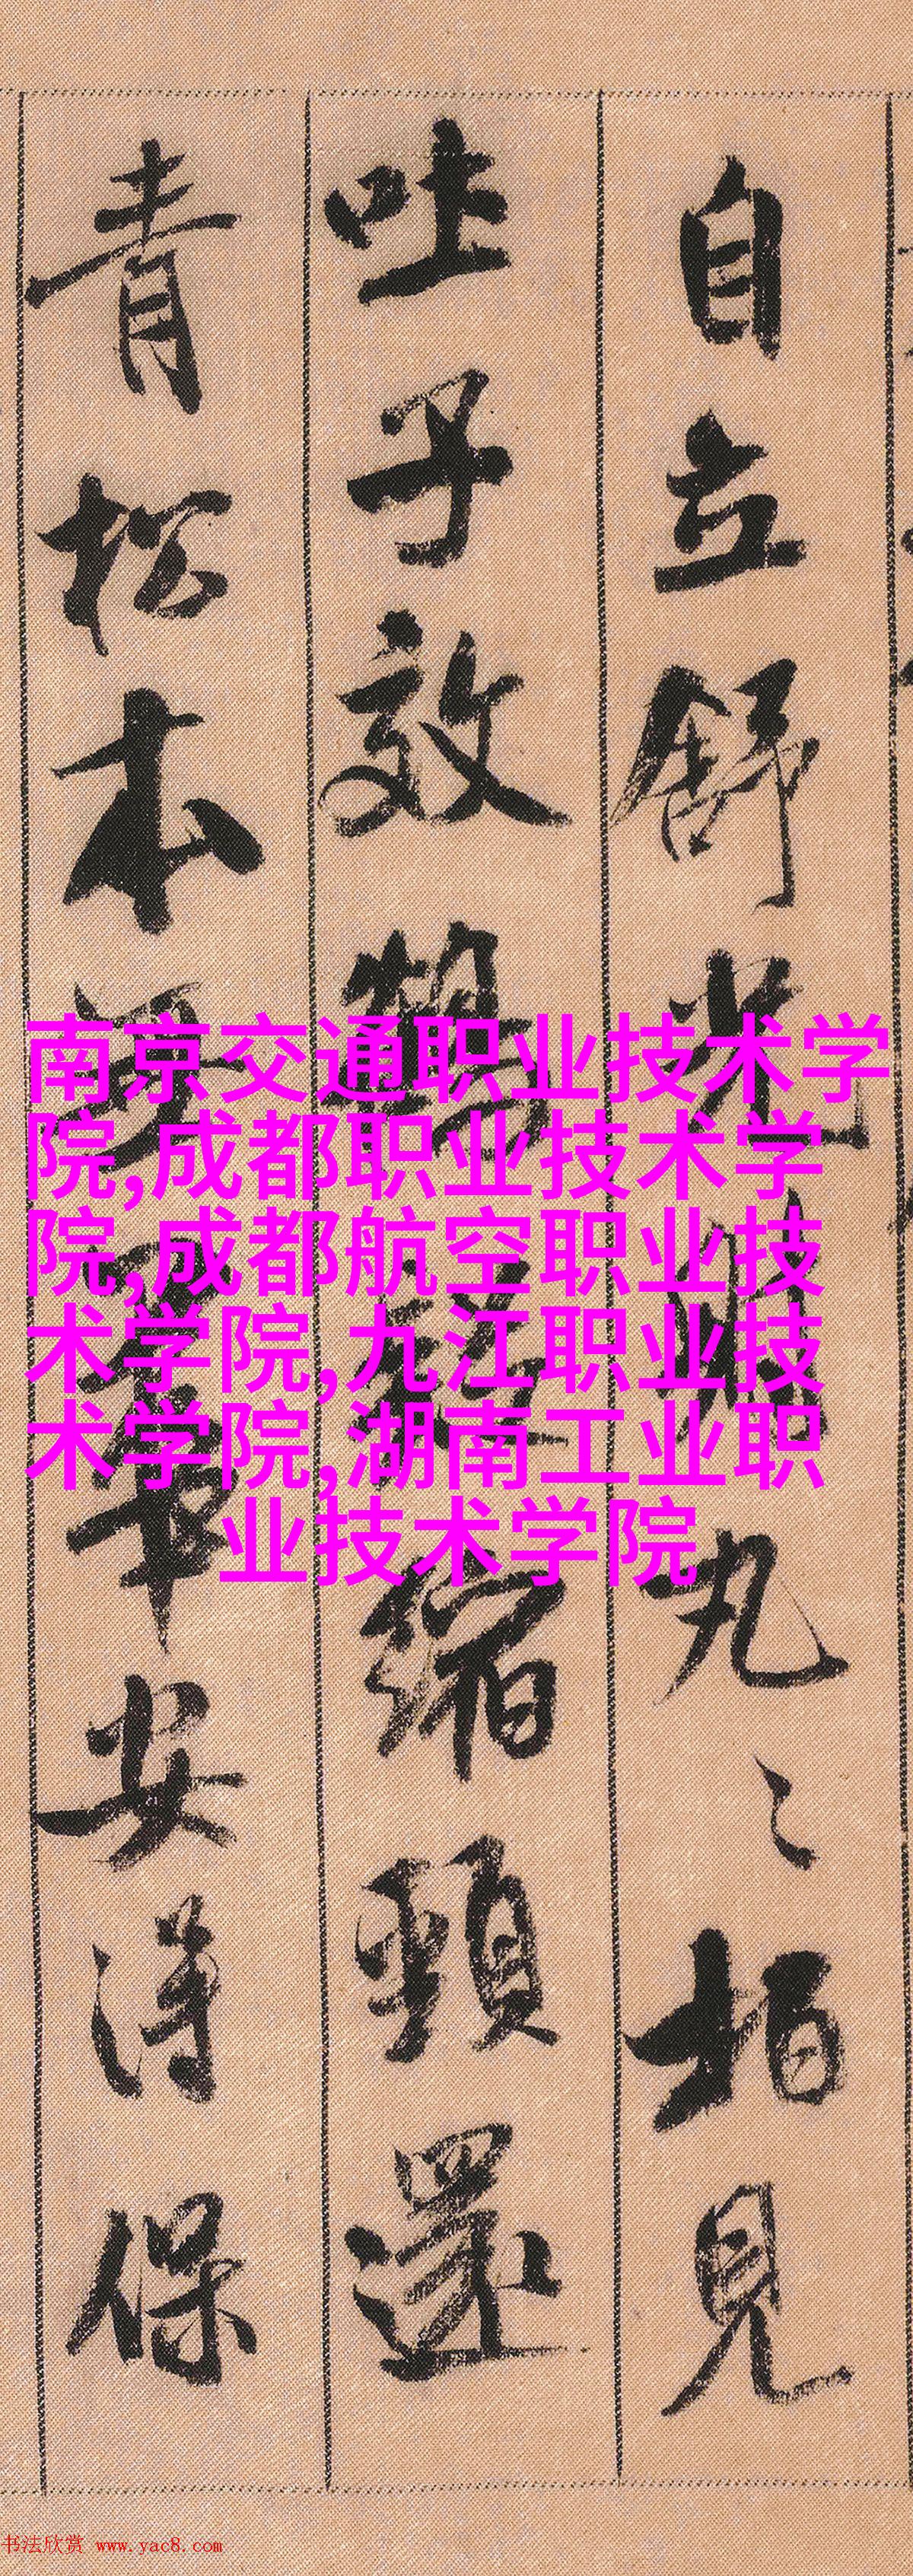 自立舒光射丸〻柏見
吐子效鶴疑縮頸還
青松本無華安得保
南京交通职业技术学
院,成都职业技术学
院,成都航空职业技
术学院,九江职业技
术学院,湖南工业职
业技术学院
书法欣赏 www.yac8.com